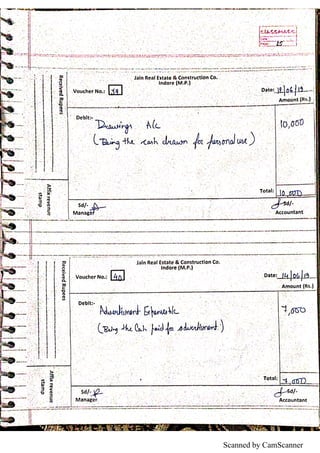 25
Jain Real Estate & Construction Co.
Indore (M.P.)
Voucher No.: 39
Date: 14/06/19
Amount (Rs.)
Debit:-
Drawings A/c
10,000
(Being the cash drawn for personal use)
Total: 10,000
Sd/-
Manager
Sd/-
Accountant
Received Rupees
Affix revenue
stamp
Jain Real Estate & Construction Co.
Indore (M.P.)
Voucher No.: 40
Date: 14/06/19
Amount (Rs.)
Debit:-
Advertisment Expenses A/c
7,000
(Being the Cash paid for advertisment)
Total: 7,000
Sd/-
Manager
Sd/-
Accountant
Received Rupees
Affix revenue
stamp
Scanned by CamScanner